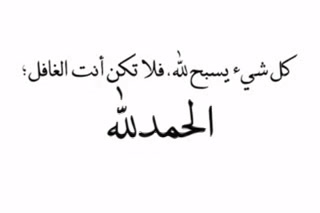 كل شيء يسبح لله، فلا تكن أنت الغافل؛
الحمدلله